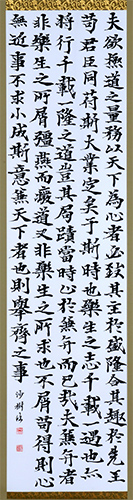 夫欲極道之量務以天下為心者必致其主於盛隆合其趣於先王
苟君臣同符斯大業定矣于斯時也樂生之志千載一遇也亦
將行千載一隆之道豈其局蹟當時止於兼并而已哉夫兼并者
非樂生之所屑彊燕而廢道又非樂生之所求也不屑苟得則心
無近事不求小成斯意兼天下者也則舉齊之事